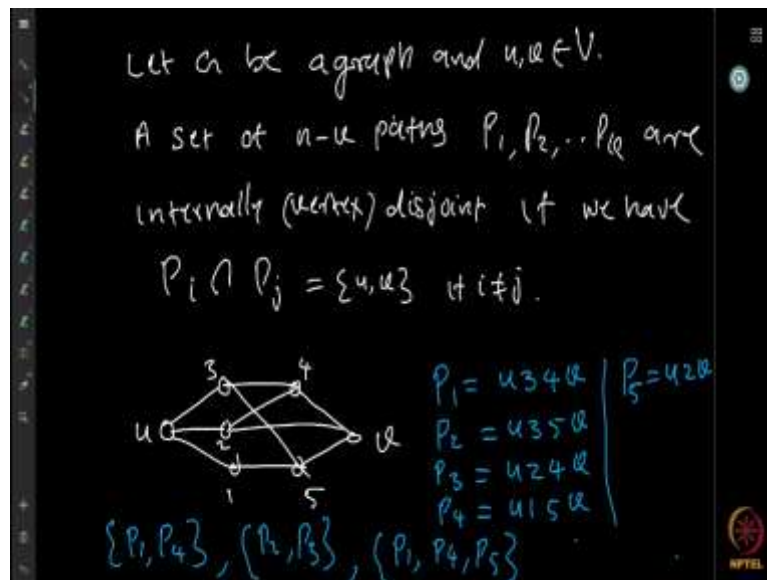 Let G be a graph and u,v ∈ V.
A set of u-v paths P₁, P₂, .. Pₖ are
internally (vertex) disjoint if we have
Pᵢ ∩ Pⱼ = {u,v} if i≠j.
3 4
u 2 v
1 5
P₁ = u34v
P₂ = u35v
P₃ = u24v
P₄ = u15v
P₅ = u2v
{P₁, P₄}, {P₂, P₃}, {P₁, P₄, P₅}
NPTEL